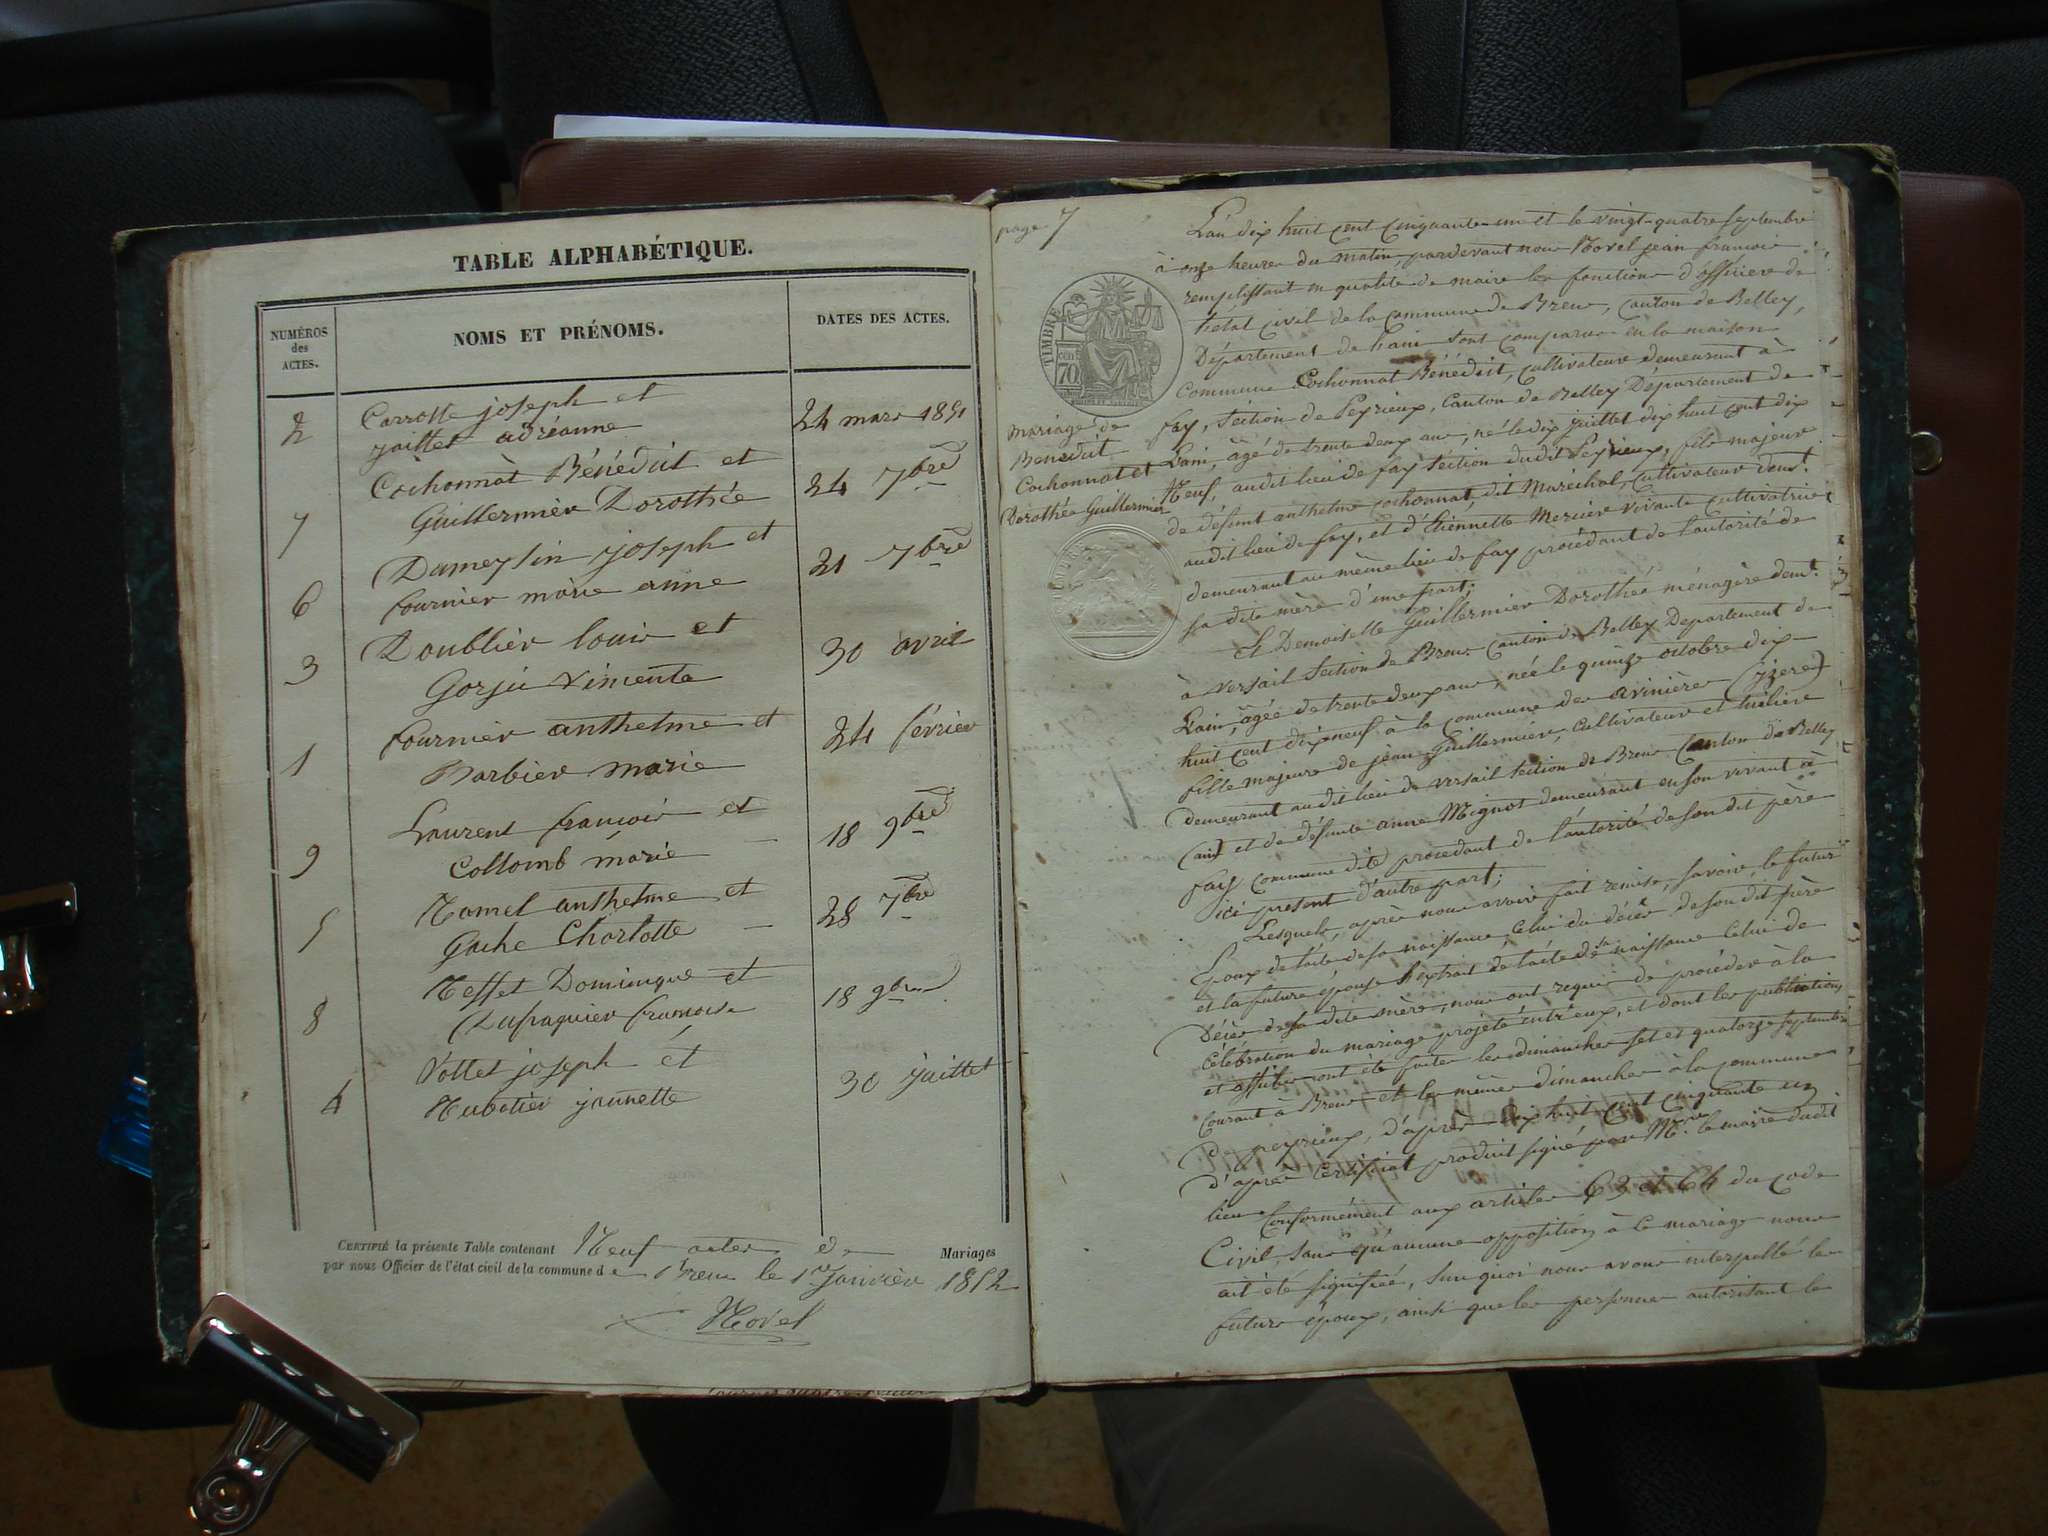 TABLE ALPHABÉTIQUE.
NUMÉROS
des
ACTES.
NOMS ET PRÉNOMS.
DATES DES ACTES.
2 Carrotte joseph et 24 mars 1851
jaillet adréanne
Cochonnat Bénédict et 24 7bre
7 Guillermier Dorothée
Dameysin joseph et 21 7bre
6 fournier marie anne
Doublier louis et 30 avril
3 Gorju vincente
fournier anthelme et 24 février
1 Barbier marie
Laurent francois et 18 9bre
9 Collomb marie
anthelme et 28 7bre
5 Gache Charlotte
Dominique et 18 9bre
8 Dupaquier francoise
Vottet joseph et 30 juillet
4 jeannette
CERTIFIÉ la présente Table contenant Neuf actes de Mariages
par nous Officier de l'état civil de la commune de Brens le 1er janvier 1852
Novel
page 7
TIMBRE
70
mariage de
Benedict
Cochonnat et
Dorothée Guillermier
L'an dix huit cent cinquante un et le vingt-quatre septembre
à onze heures du matin, pardevant nous Novel jean francois
remplissant en qualité de maire les fonctions d'officier de
l'état civil de la commune de Brens, canton de Belley,
Département de l'ain sont comparus en la maison
commune Cochonnat Bénédict, cultivateur demeurant à
fay, section de Peyrieux, canton de Belley Département de
L'ain, âgé de trente deux ans, né le dix juillet dix huit cent dix
Neuf, audit lieu de fay section dudit Peyrieux, fils majeur
de défunt anthelme cochonnat, dit Maréchal, cultivateur demt.
audit lieu de fay, et d'Etiennette Mercier vivante cultivatrice
demeurant au même lieu de fay procédant de l'autorité de
sa dite mère d'une part;
Et Demoiselle Guillermier Dorothée ménagère demt.
à versail section de Brens canton de Belley Département de
L'ain, âgée de trente deux ans, née le quinze octobre dix
huit cent dix neuf à la commune des avinières (yzere)
fille majeure de jean Guillermier, cultivateur et
demeurant audit lieu de versail section de Brens Canton de Belley
(ain) et de défunte anne Mignot demeurant en son vivant à
fay commune dite procédant de l'autorité de son dit père
ici present d'autre part;
Lesquels, après nous avoir fait remise, savoir, le futur
Epoux de l'acte de sa naissance, Celui du décès de son dit père
et la future épouse l'extrait de l'acte de sa naissance Celui de
Décès de sa dite mère, nous ont requis de procéder à la
célébration du mariage projeté entr'eux, et dont les publications
et affiches ont été faites les dimanches sept et quatorze septembre
Courant à Brens et les mêmes dimanches à la commune
De peyrieux, d'après dix huit cent cinquante un
d'après certificat produit signé par Mr. le maire dudit
lieu Conformément aux articles 63 et 64 du code
Civil, sans qu'aucune opposition à ce mariage nous
ait été signifiée, sur quoi nous avons interpellé les
futurs époux, ainsi que les personnes autorisant le